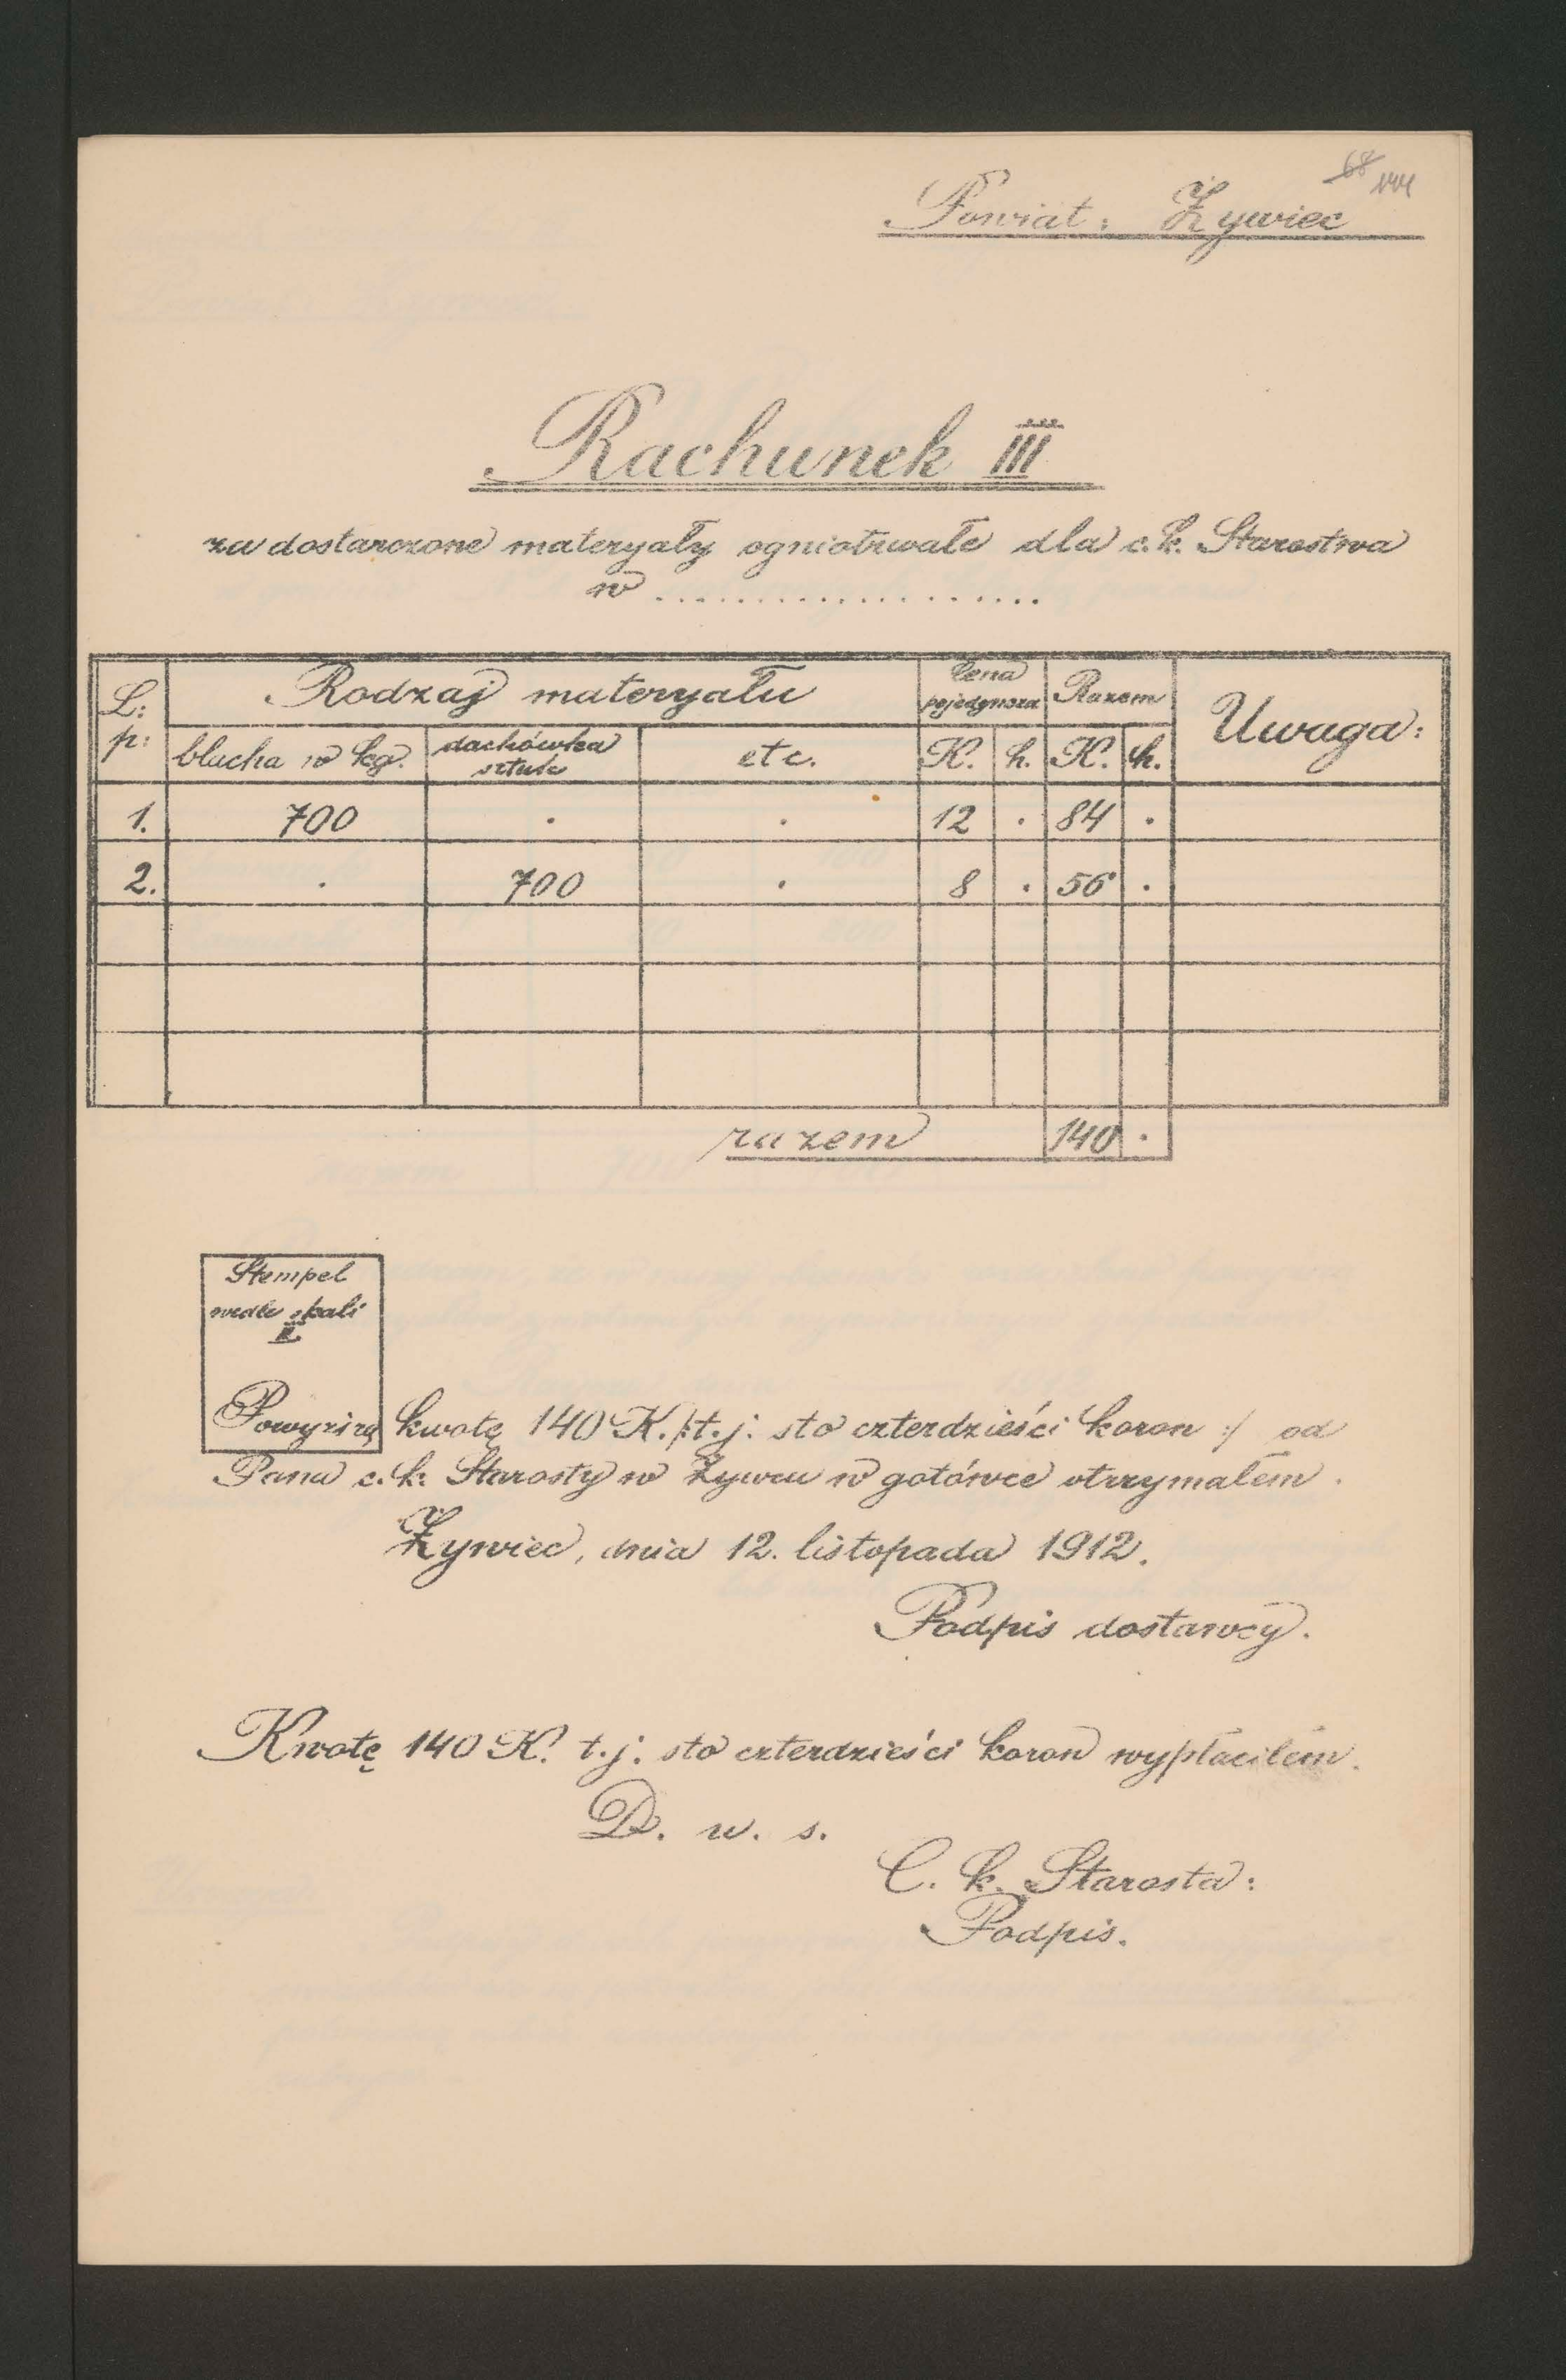 68
Powiat: Żywiec
Rachunek III
za dostarczone materyały ogniotrwałe dla c.k. Starostwa
w ...................
L: p: Rodzaj materyału Cena pojedyncza Razem Uwaga:
blacha w kg. dachówka sztuk etc. K. h. K. h.
1. 700 . . 12 . 84 .
2. . 700 . 8 . 56 .
razem 140 .
Stempel
wedle skali
II
Powyższą kwotę 140 K. /:t.j. sto czterdzieści koron :/ od
Pana c.k. Starosty w Żywcu w gotówce otrzymałem.
Żywiec, dnia 12. listopada 1912.
Podpis dostawcy.
Kwotę 140 K. t.j. sto czterdzieści koron wypłaciłem.
D. u. s.
C. k. Starosta:
Podpis.